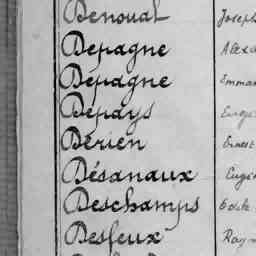 Denoual Joseph
Depagne Alexa
Dépagne Emman
Depays Eugè
Dérien Ernest
Désanaux Eugèn
Deschamps Odile
Desfeux Raym